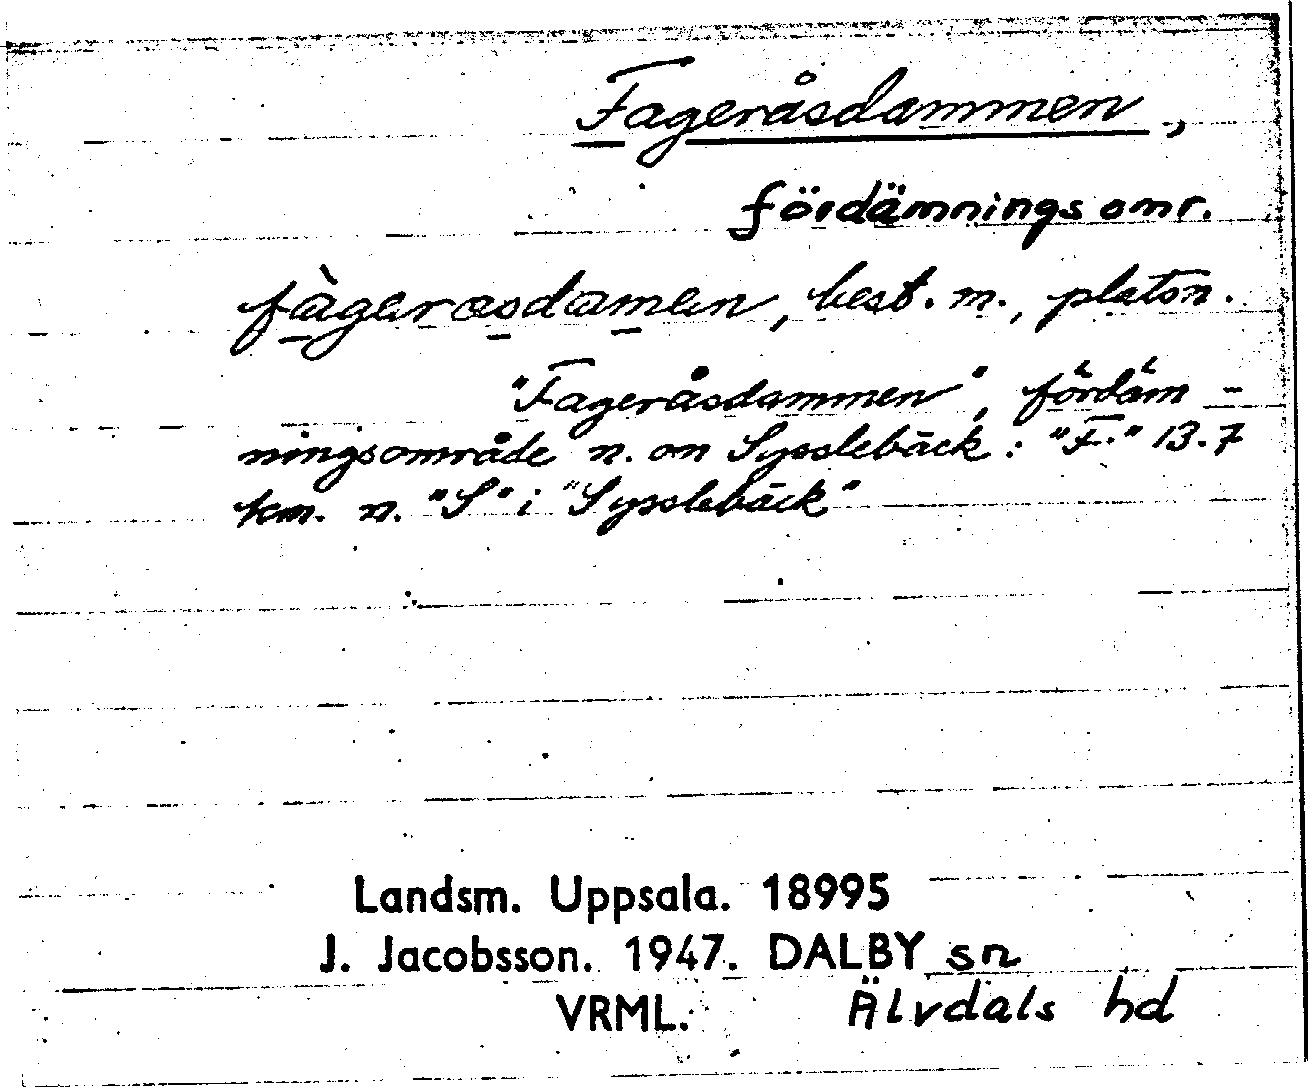 Fageråsdammen,
fördämningsomr.
fàgerasdamen, best. m., platsn.
"Fageråsdammen", fördäm-
ningsområde n. om Sysslebäck: "F." 13.7
km. n. "S" i "Sysslebäck"
Landsm. Uppsala. 18995
J. Jacobsson. 1947. DALBY sn
VRML. Älvdals hd